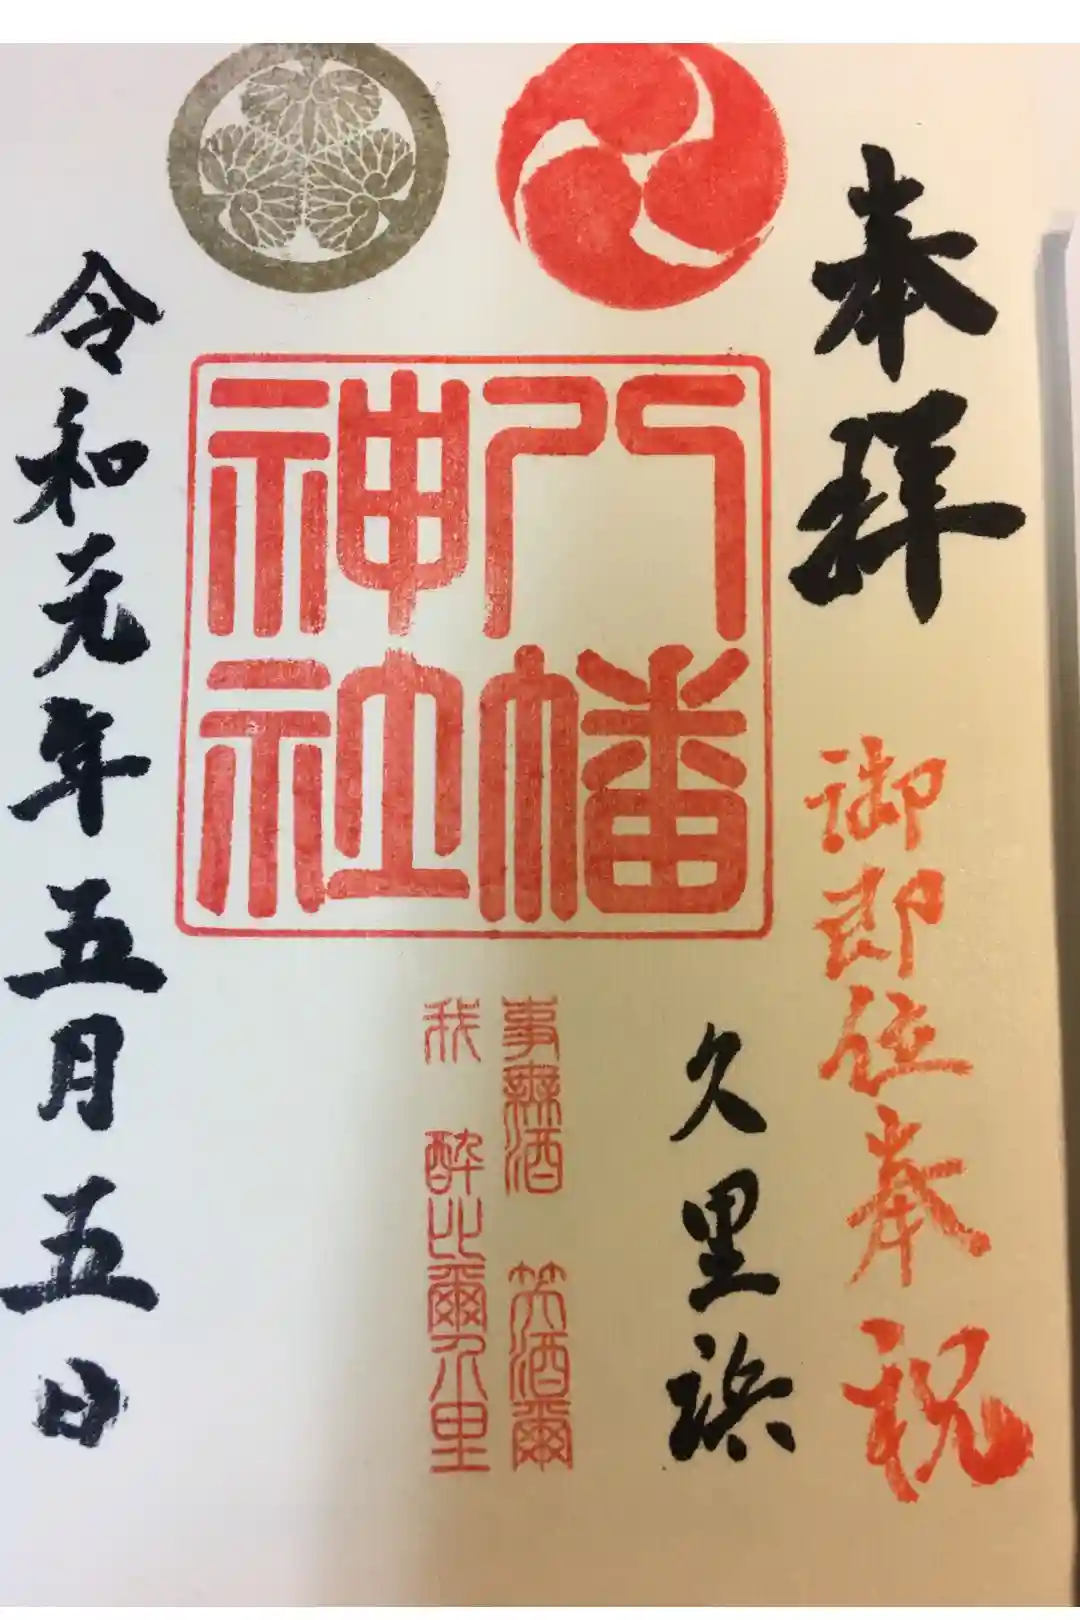 奉拝
御即位奉祝
久里浜
八幡
神社
事無酒 笑酒爾
我 酔比爾介里
令和元年五月五日